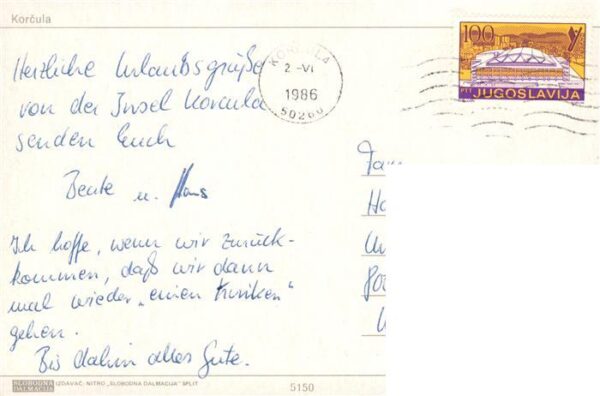 Korčula
Herzliche Urlaubsgrüße
von der Insel Korcula
senden Euch
Beate u. Hans
Ich hoffe, wenn wir zurück-
kommen, daß wir dann
mal wieder „einen
gehen.
Bis dahin alles Gute.
KORČULA
2.-VI
1986
50260
100
PTT JUGOSLAVIJA
SLOBODNA
DALMACIJA
IZDAVAČ: NITRO „SLOBODNA DALMACIJA" SPLIT
5150